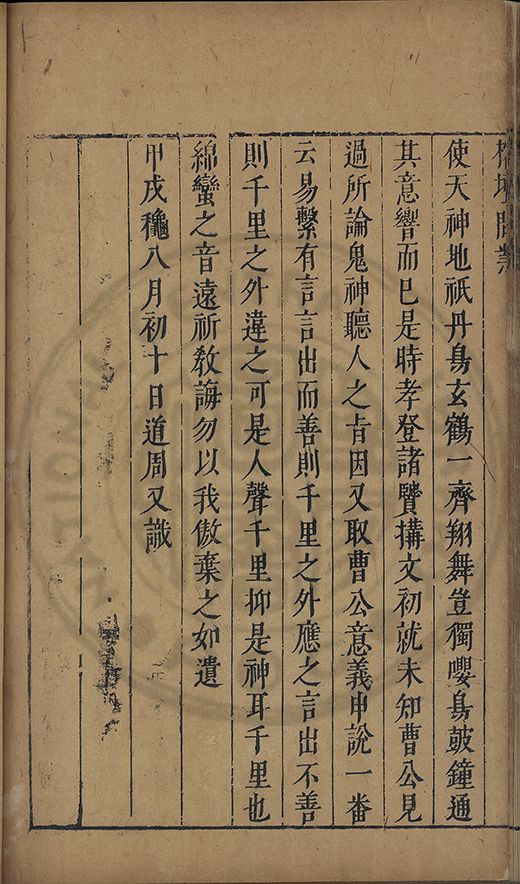 榕壇問業
使天神地祇丹鳥玄鶴一齊翔舞豈獨嚶鳥鼓鐘通
其意響而已是時孝登諸贒搆文初就未知曹公見
過所論鬼神聽人之旨因又取曹公意義申說一番
云易繫有言言出而善則千里之外應之言出不善
則千里之外違之可是人聲千里抑是神耳千里也
綿蠻之音遠祈敎誨勿以我傲棄之如遺
甲戌龝八月初十日道周又識